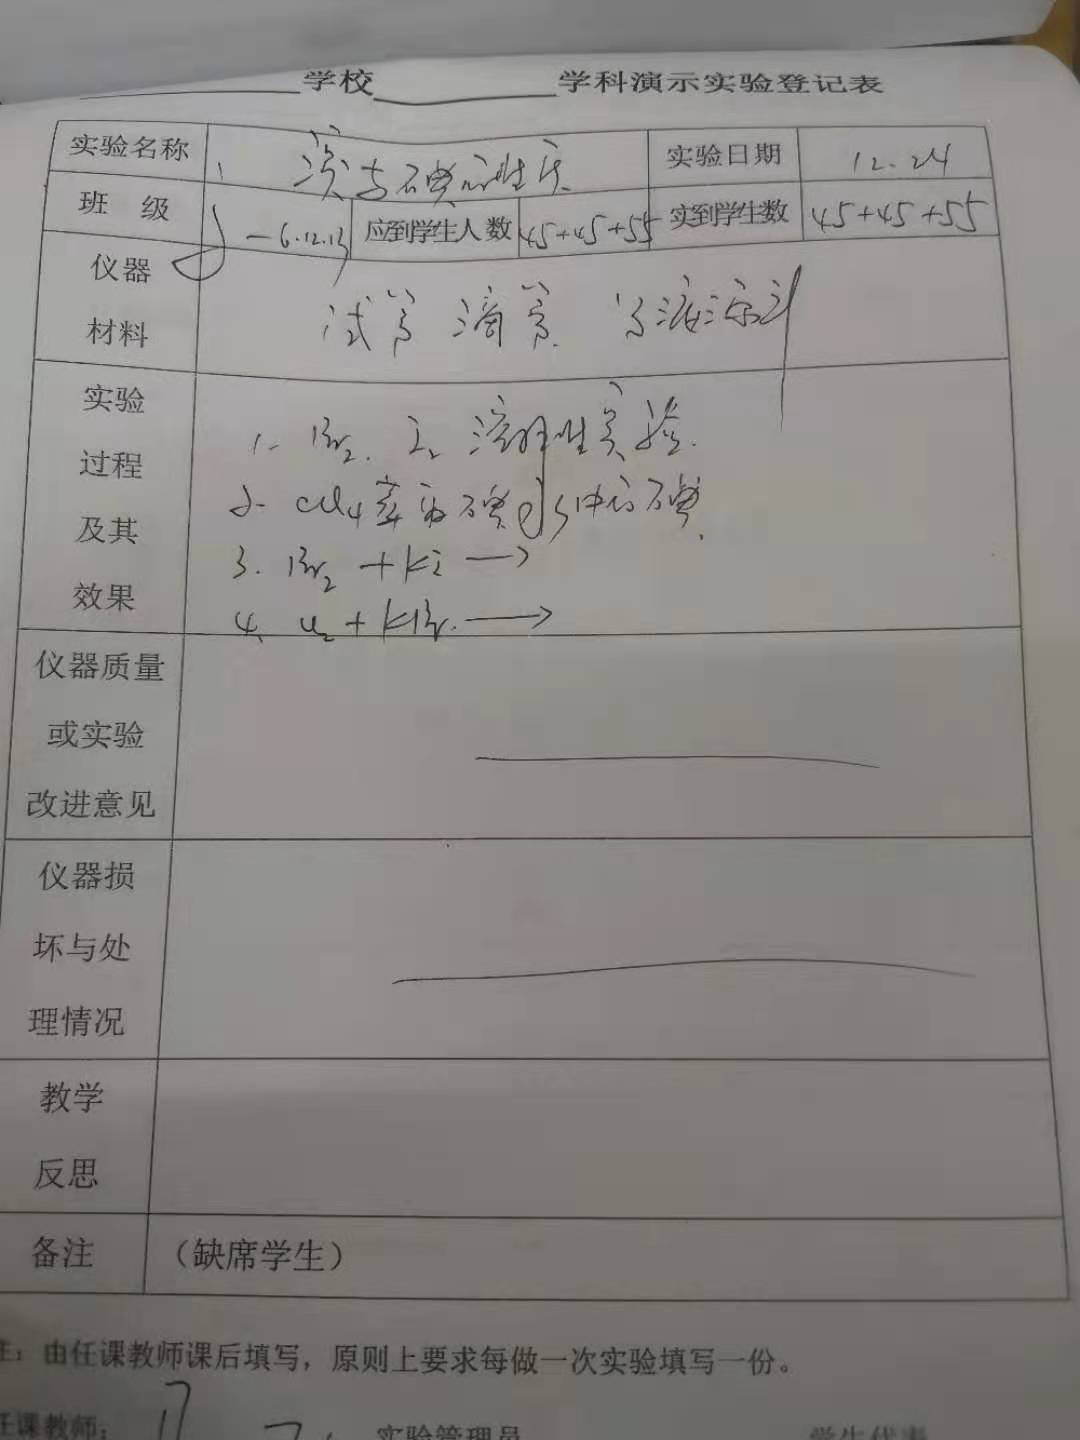 学校 学科演示实验登记表
实验名称 溴与碘的性质 实验日期 12.24
班 级 高一6.12.13 应到学生人数 45+45+55 实到学生数 45+45+55
仪器材料 试管 滴管
实验过程及其效果
1. Br₂、I₂ 溶解性实验.
2. CCl₄萃取碘水中的碘.
3. Br₂ + KI ⟶
4. Cl₂ + KBr. ⟶
仪器质量或实验改进意见
仪器损坏与处理情况
教学反思
备注 （缺席学生）
注：由任课教师课后填写，原则上要求每做一次实验填写一份。
任课教师： 实验管理员 学生代表